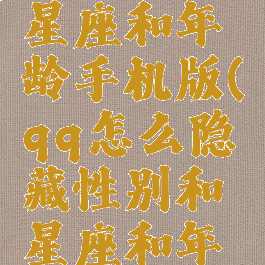 星座和年
龄手机版(
qq怎么隐
藏性别和
星座和年